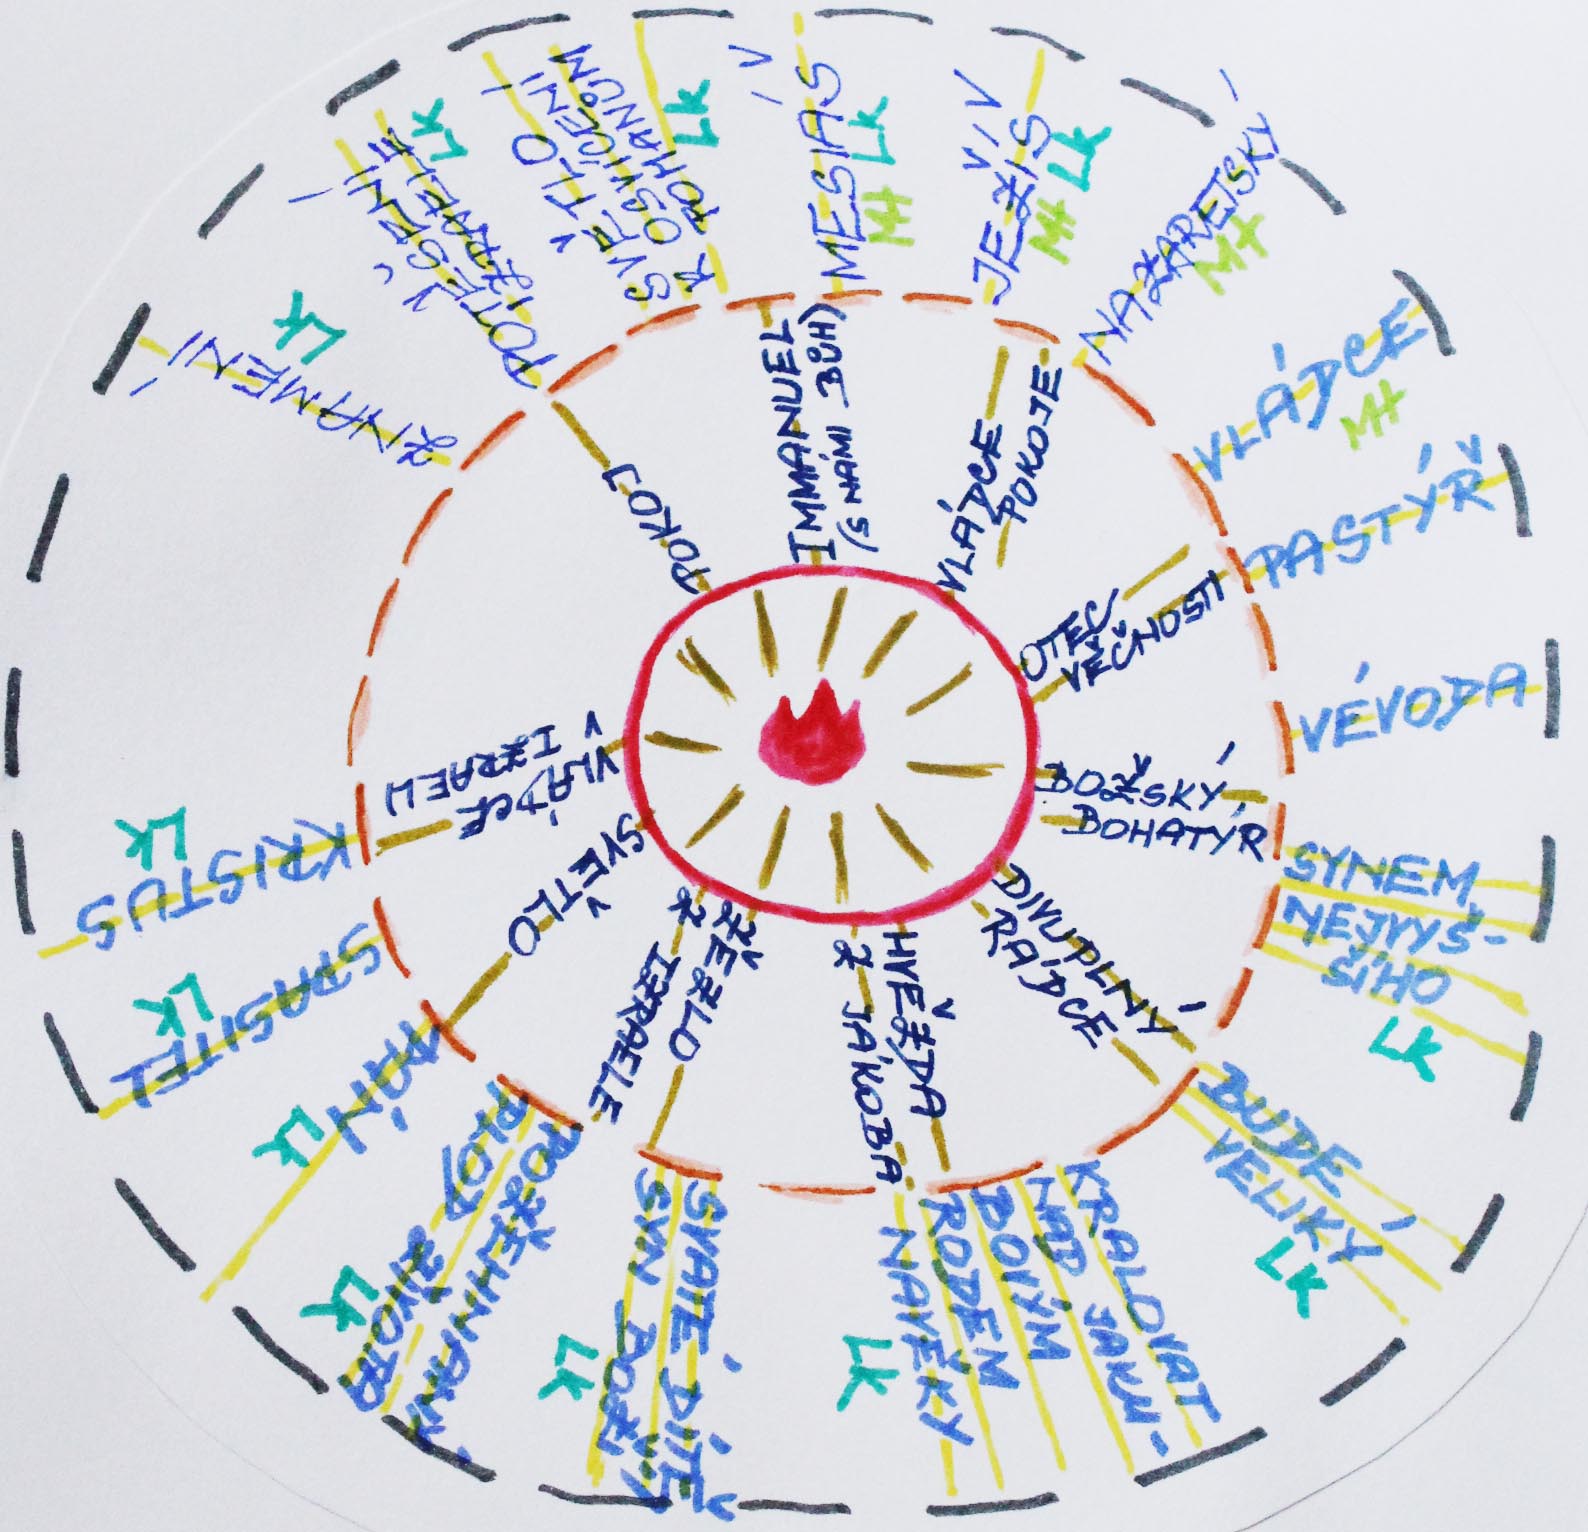 IMMANUEL
(S NÁMI BŮH)
VLÁDCE
POKOJE
OTEC
VĚČNOSTI
BOŽSKÝ
BOHATÝR
DIVUPLNÝ
RÁDCE
HVĚZDA
Z JÁKOBA
ŽEZLO
Z IZRAELE
SVĚTLO
VLÁDCE
V IZRAELI
POKOJ
MESIÁŠ
Mt
LK
JEŽÍŠ
Mt
LK
NAZARETSKÝ
Mt
VLÁDCE
Mt
PASTÝŘ
VÉVODA
SYNEM
NEJVYŠ-
ŠÍHO
LK
BUDE
VELIKÝ
LK
KRALOVAT
NAD JAKU-
BOVÝM
RODEM
NAVĚKY
LK
SVATÉ DÍTĚ
SYN BOŽÍ
LK
POŽEHNANÝ
PLOD ŽIVOTA
LK
PÁN
LK
SPASITEL
LK
KRISTUS
LK
ZNAMENÍ
LK
POTĚŠENÍ
IZRAELE
LK
SVĚTLO
K OSVÍCENÍ
POHANŮM
LK